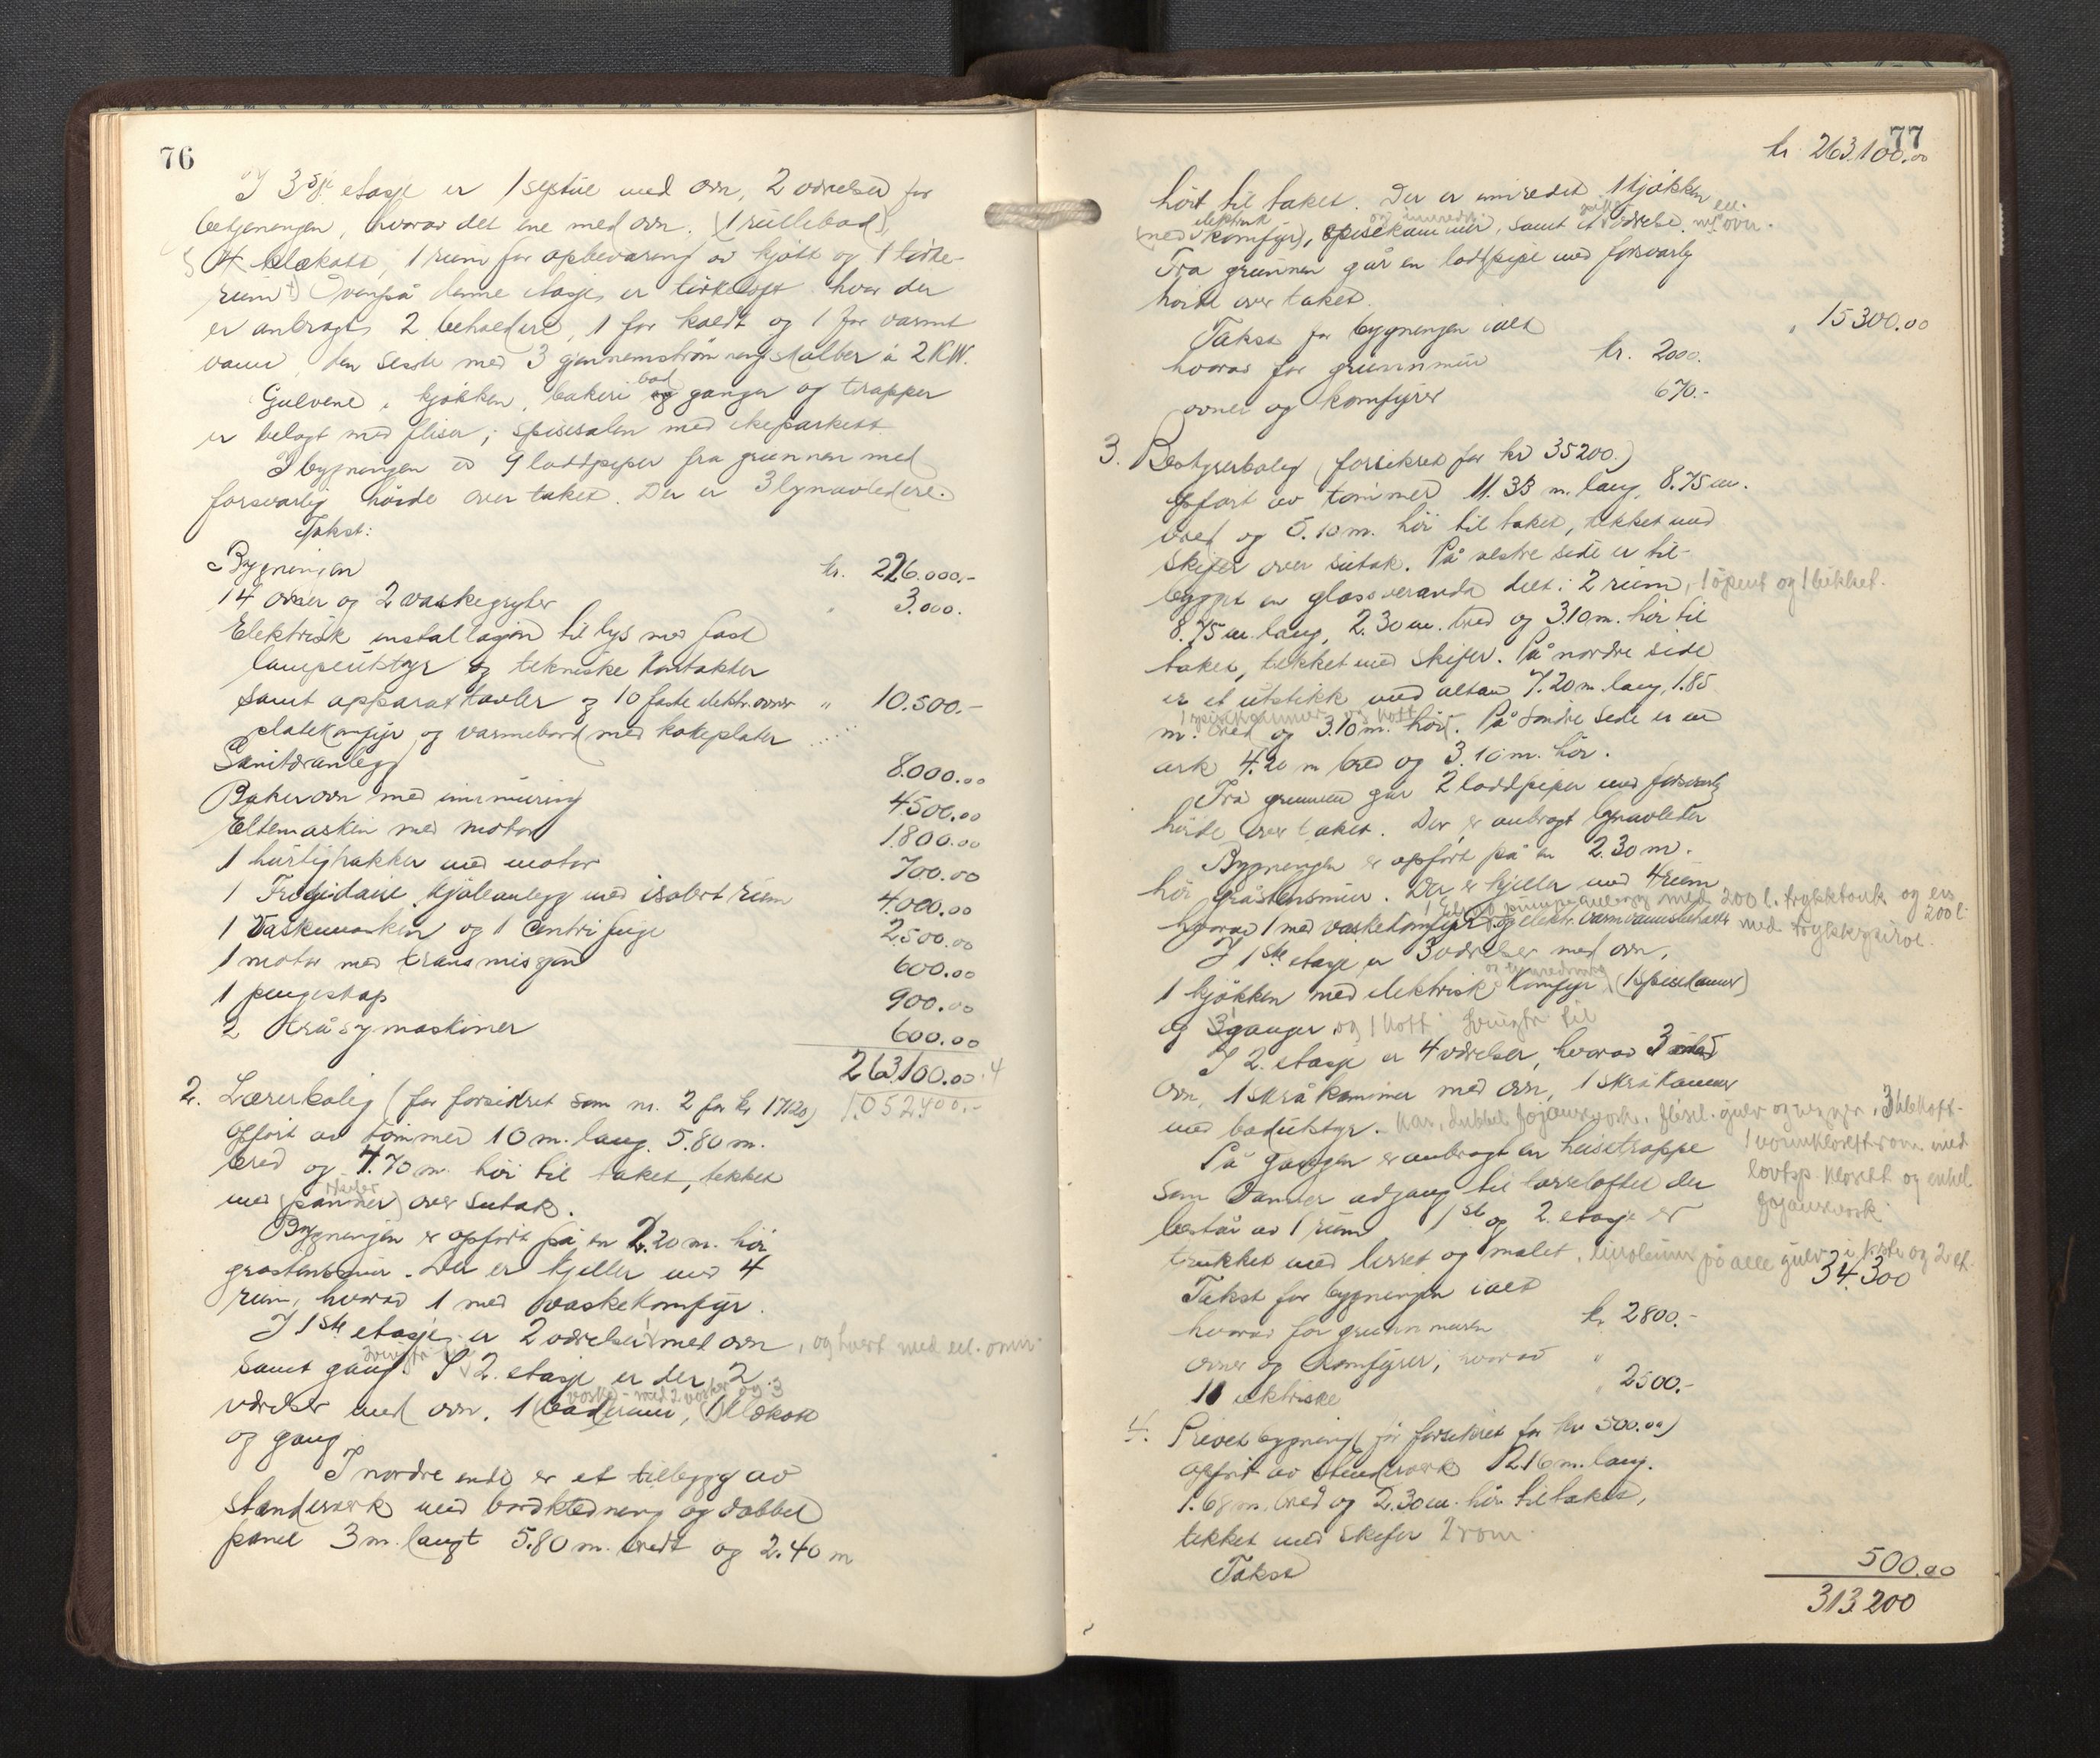 76
I 3dje etasje er 1 systue med ovn, 2 værelser for
betjeningen, hvorav det ene med ovn. (1 rullebod),
4 klækott, 1 rum for opbevaring av kjøtt og 1 tørke-
rum. Ovenpå denne etasje er tørkeloft hvor der
er anbragt 2 beholdere, 1 for koldt og 1 for varmt
vann, den siste med 3 gjennemstrømningskolber à 2 KW.
Gulvene i kjøkken, bakeri bad og ganger og trapper
er belagt med fliser; spisesalen med ekeparkett.
I bygningen er 9 loddpiper fra grunnen med
forsvarlig høide over taket. Der er 3 lynavledere.
Takst:
Bygningen kr. 226.000.-
14 ovner og 2 vaskegryter " 3.000.
Elektrisk installasjon til lys med fast
lampeutstyr og tekniske kontakter
samt apparattavler og 10 faste elektr. ovner " 10.500.-
platekomfyr og varmebord med kokeplater
Sanitæranlegg 8.000.00
Bakerovn med innmuring 4500.00
Eltemaskin med motor 1.800.00
1 hurtighakker med motor 700.00
1 Frigidaire kjøleanlegg med isolert rum 4.000.00
1 Vaskemaskin og 1 Centrifuge 2.500.00
1 motor med transmisjon 600.00
1 pengeskap 900.00
2 tråsymaskiner 600.00
263.100.00 . 4
1.052.400.-
2. Lærerbolig (før forsikret som nr. 2 for kr 17120)
opført av tømmer 10 m. lang. 5.80 m.
bred og 4.70 m. høi til taket, tekket
skifer
med (panner) over sutak.
Bygningen er opført på en 2.20 m. høi
gråstensmur. Der er kjeller med 4
rum, hvorav 1 med vaskekomfyr.
I 1ste etasje er 2 værelser med ovn, og hvert med el. ovn
samt gang. I 2. etasje er der 2
vaske- med 2 vasker og 3
værelser med ovn. 1 (bad)rum, 1 klækott
og gang.
I nordre ende er et tilbygg av
stenderverk med bordkledning og dobbel
panel 3 m. langt 5.80 m. bredt og 2.40 m
77
kr 263.100.00
høit til taket. Der er innredet 1 kjøkken
elektrisk og innredn. el.
(med komfyr), spisekammer, samt et værelse m/ ovn.
Fra grunnen går en loddpipe med forsvarlig
høide over taket.
Takst for bygningen ialt " 15300.00
hvorav for grunnmur kr. 2000.
ovner og komfyrer 670.-
3. Bestyrerbolig (forsikret for kr 35200.)
opført av tømmer 11.33 m. lang, 8.75 m.
bred og 5.10 m. høi til taket, tekket med
skifer over sutak. På vestre side er til-
bygget en glassveranda delt i 2 rum, 1 åpent og 1 lukket.
8.75 m. lang, 2.30 m. bred og 3.10 m. høi til
taket, tekket med skifer. På nordre side
er et utstikk med altan 7.20 m. lang, 1.85
1 spisekammer og kott
m. bred og 3.10 m. høi. På søndre side er en
ark 4.20 m bred og 3.10 m. høi.
Fra grunnen går 2 loddpiper med forsvarlig
høide over taket. Der er anbragt lynavleder
Bygningen er opført på en 2.30 m.
høi gråstensmur. Der er kjeller med 4 rum
med 200 l. trykktank og en
hvorav 1 med vaskekomfyr og elektr. varmtvannsbeholder 200 l.
I 1ste etasje er 3 værelser med ovn,
og innredning
1 kjøkken med elektrisk komfyr (1 spisekammer)
og 3 ganger og 1 kott
I 2. etasje er 4 værelser, hvorav 3 med
ovn, 1 skråkammer med ovn, 1 skråkammer
med badutstyr.
På gangen er anbragt en heisetrappe
som danner adgang til lorteloftet der
består av 1 rum. 1ste og 2. etasje er
trukket med lerret og malet. linoleum på alle gulv i 1ste og 2 et.
Takst for bygningen ialt 34.300
hvorav for grunnmuren kr 2800.-
ovner og komfyrer, hvorav "
11 elektriske " 2500.-
4. Privetbygning (før forsikret for kr 500.00)
opført av stenderverk 12.16 m. lang.
1.68 m. bred og 2.30 m. høi til taket,
tekket med skifer 2 rom.
Takst 500.00
313.200